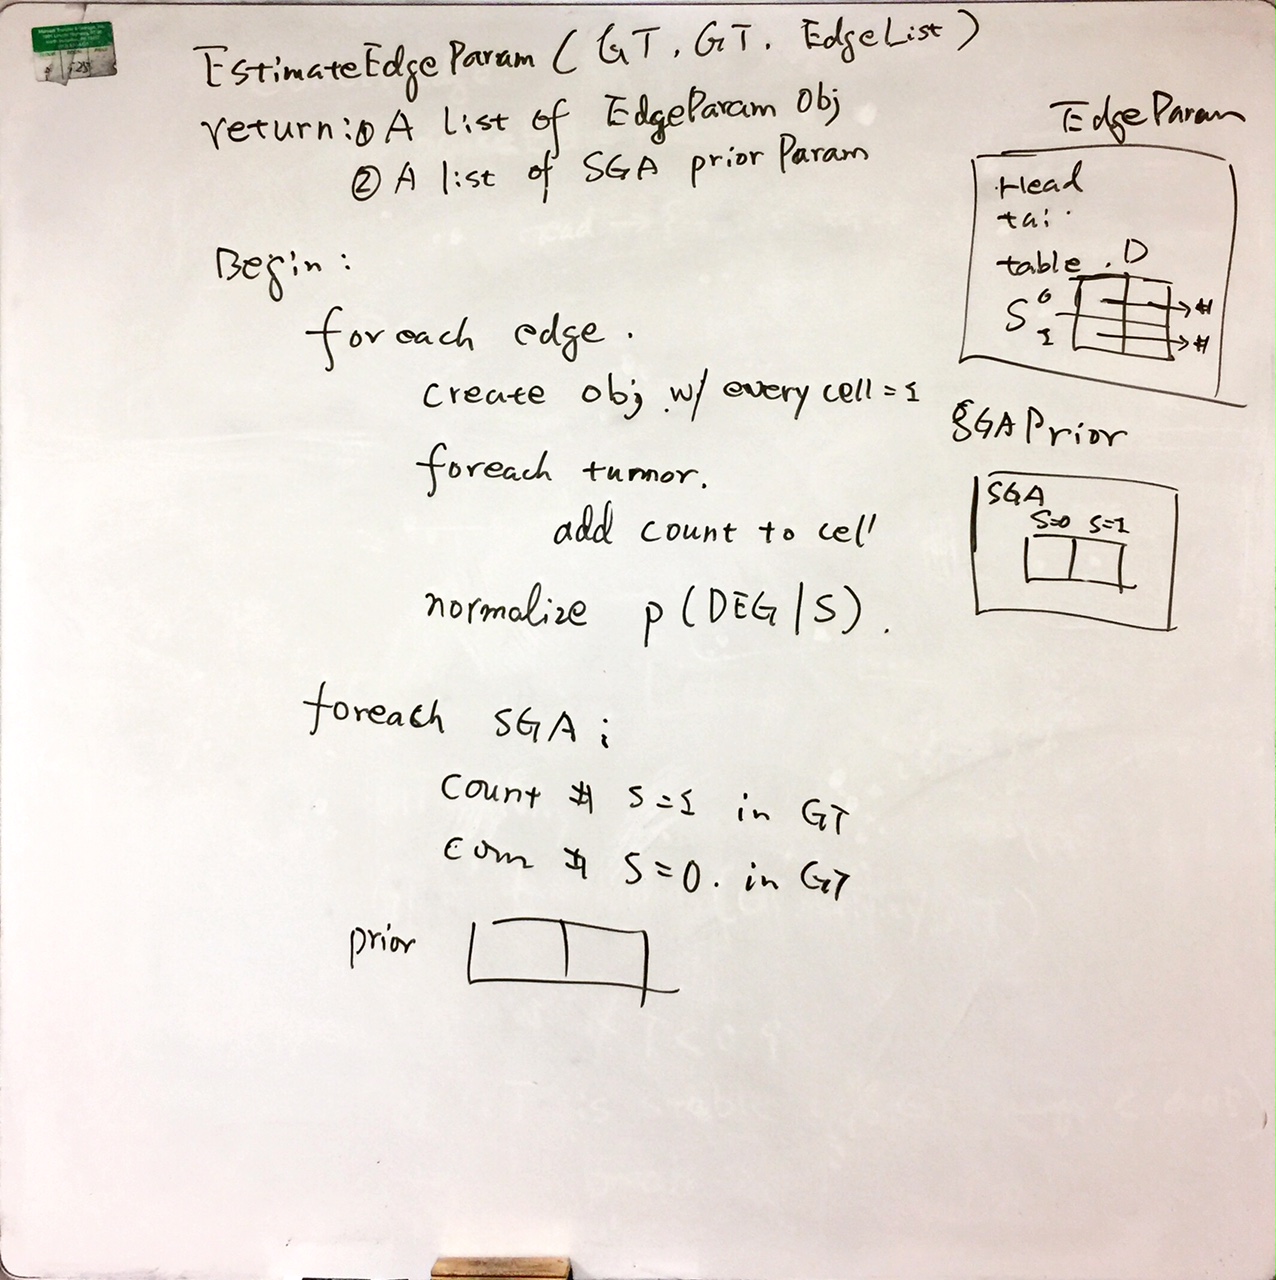 EstimateEdgeParam (GT, GT, EdgeList)
return: ① A list of EdgeParam Obj
② A list of SGA prior Param
Begin:
foreach edge.
create obj w/ every cell = 1
foreach tumor.
add count to cell
normalize p(DEG|S).
foreach SGA;
count # S=1 in GT
# S=0. in GT
prior
EdgeParam
Head
tai
table. D
S 0 #
1 #
SGAPrior
SGA
S=0 S=1